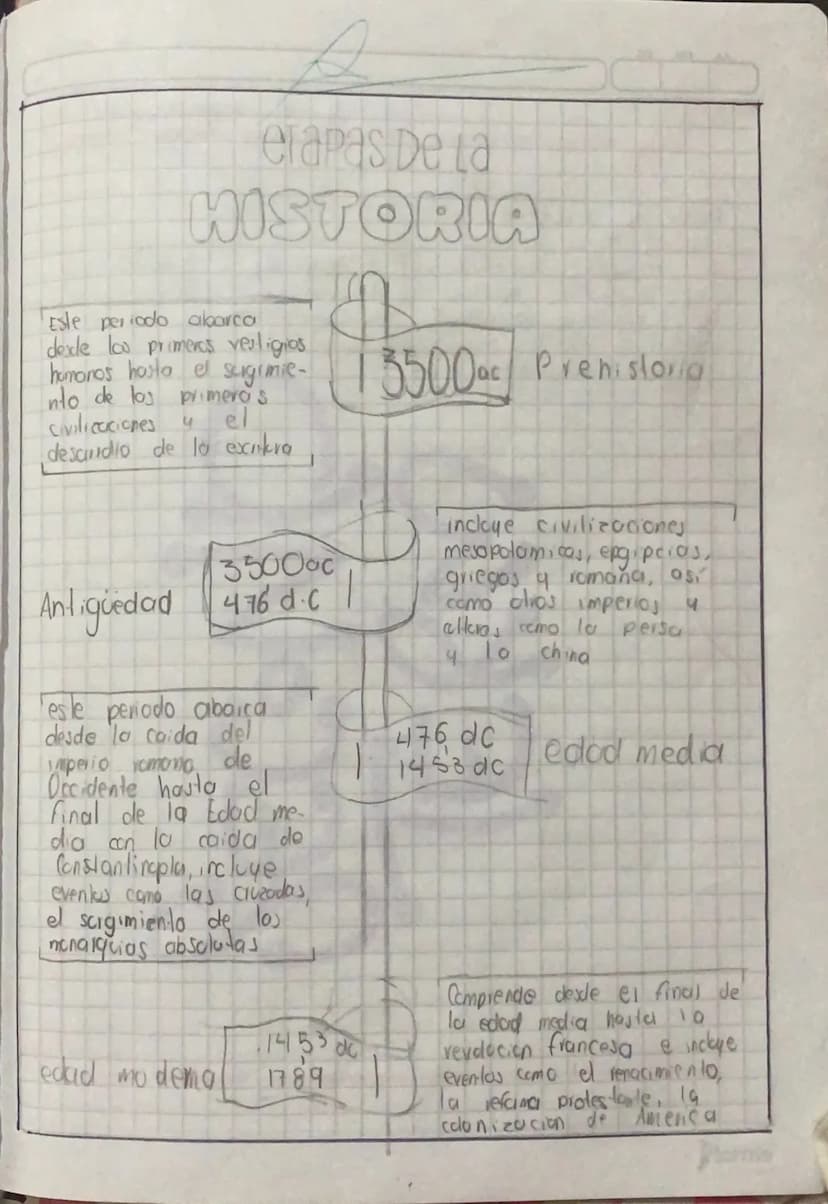 etapas De la
HISTORIA
Este periodo abarca
desde los primeros vestigios
humanos hasta el surgimie-
nto de las primeras
civilizaciones y el
desarrollo de la escritura
3500ac
Prehistoria
Antigüedad
3500ac
476 d.C
incluye civilizaciones
mesopotamicas, epgipcias,
griegas y romana, así
como otros imperios y
como la persa
y la china
este periodo abarca
desde la caida del
imperio romano de
Occidente hasta el
final de la Edad me-
dia con la caida de
Constantinopla, incluye
eventos como las cruzadas,
el surgimiento de las
monarquias absolutas
476 dC
1453 dC
edad media
edad moderna
1453 dc
1789
Comprende desde el final de
la edad media hasta la
revolucion francesa e incluye
eventos como el renacimiento,
la reforma protestante, la
colonizacion de America